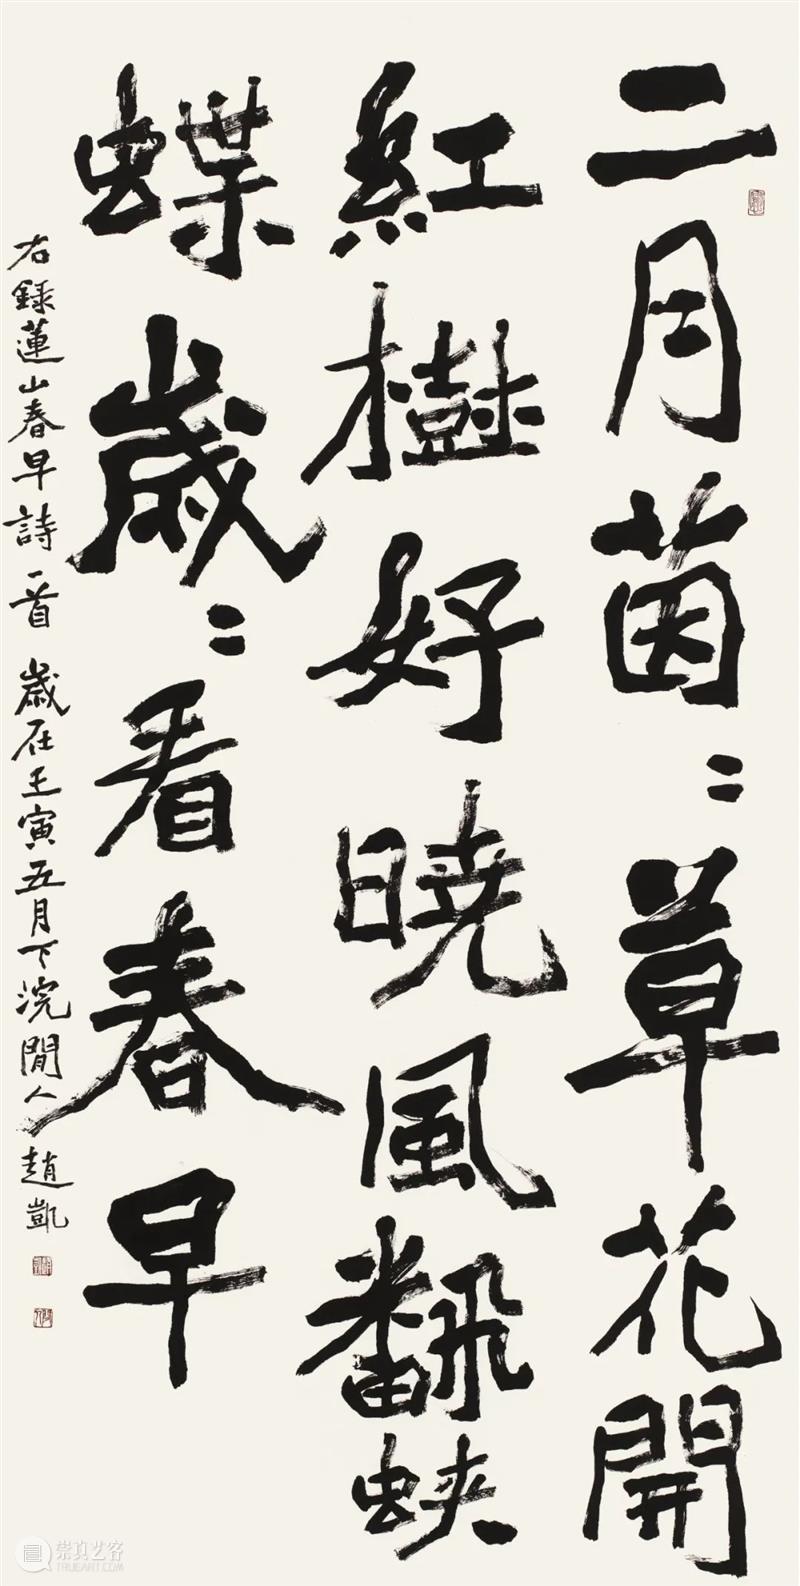 二月茵〻草花開
紅樹好曉風飜蛺
蝶歲〻看春早
右録蓮山春早詩一首 歲在壬寅五月下浣閒人趙凱
崇真艺客
TRUEART.COM